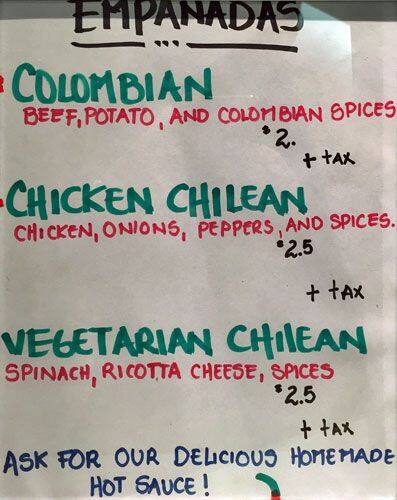 EMPANADAS
COLOMBIAN
BEEF, POTATO, AND COLOMBIAN SPICES
$2.
+ tAX
CHICKEN CHILEAN
CHICKEN, ONIONS, PEPPERS, AND SPICES.
$2.5
+ tAX
VEGETARIAN CHILEAN
SPINACH, RICOTTA CHEESE, SPICES
$2.5
+ tAX
ASK FOR OUR DELICIOUS HOMEMADE
HOT SAUCE!